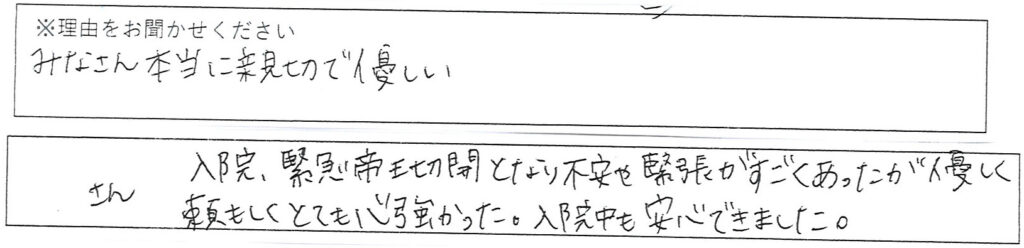 ※理由をお聞かせください
みなさん本当に親切で優しい
さん 入院、緊急帝王切開となり不安や緊張がすごくあったが優しく
頼もしくとても心強かった。入院中も安心できました。